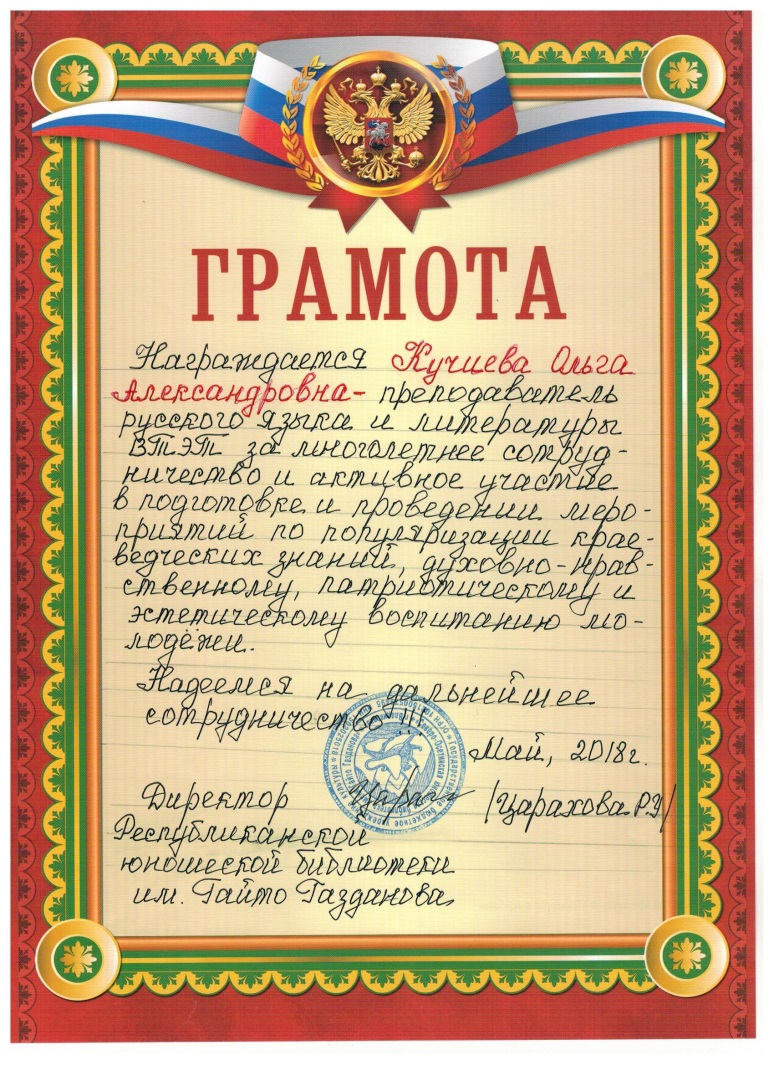 ГРАМОТА
Награждается Кучиева Ольга
Александровна - преподаватель
русского языка и литературы
ВТЭТ за многолетнее сотруд-
ничество и активное участие
в подготовке и проведении меро-
приятий по популяризации крае-
ведческих знаний, духовно-нрав-
ственному, патриотическому и
эстетическому воспитанию мо-
лодёжи.
Надеемся на дальнейшее
сотрудничество !!!
Май, 2018г.
Директор /Царахова Р.У/
Республиканской
юношеской библиотеки
им. Гайто Газданова